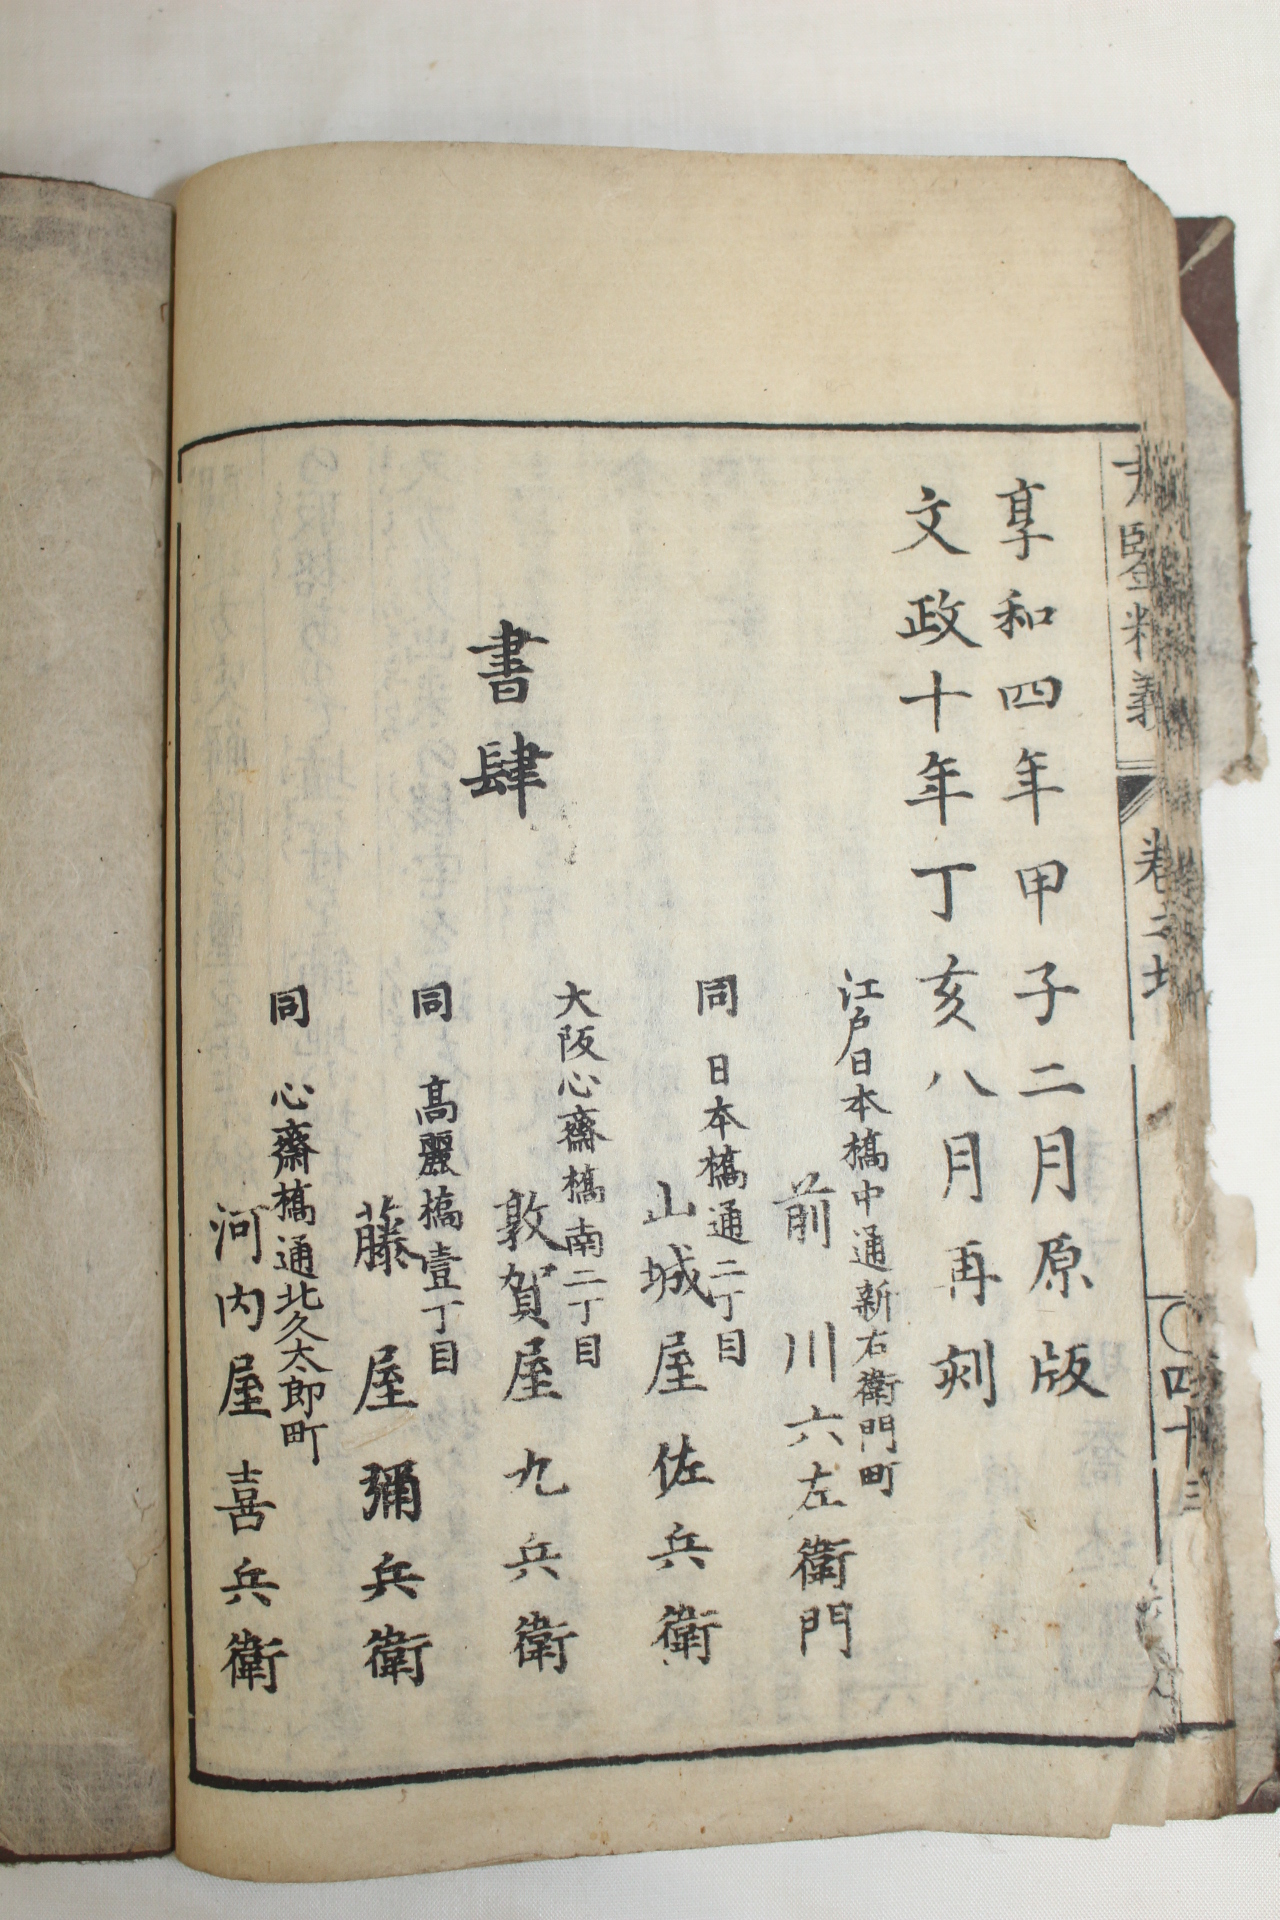 享和四年甲子二月原版
文政十年丁亥八月再刻
書肆
江戸日本橋中通新右衛門町
前川六左衛門
同 日本橋通二丁目
山城屋佐兵衛
大阪心齋橋南二丁目
敦賀屋九兵衛
同 高麗橋壹丁目
藤屋彌兵衛
同 心齋橋通北久太郎町
河内屋喜兵衛
鑒精義
卷之
四十三